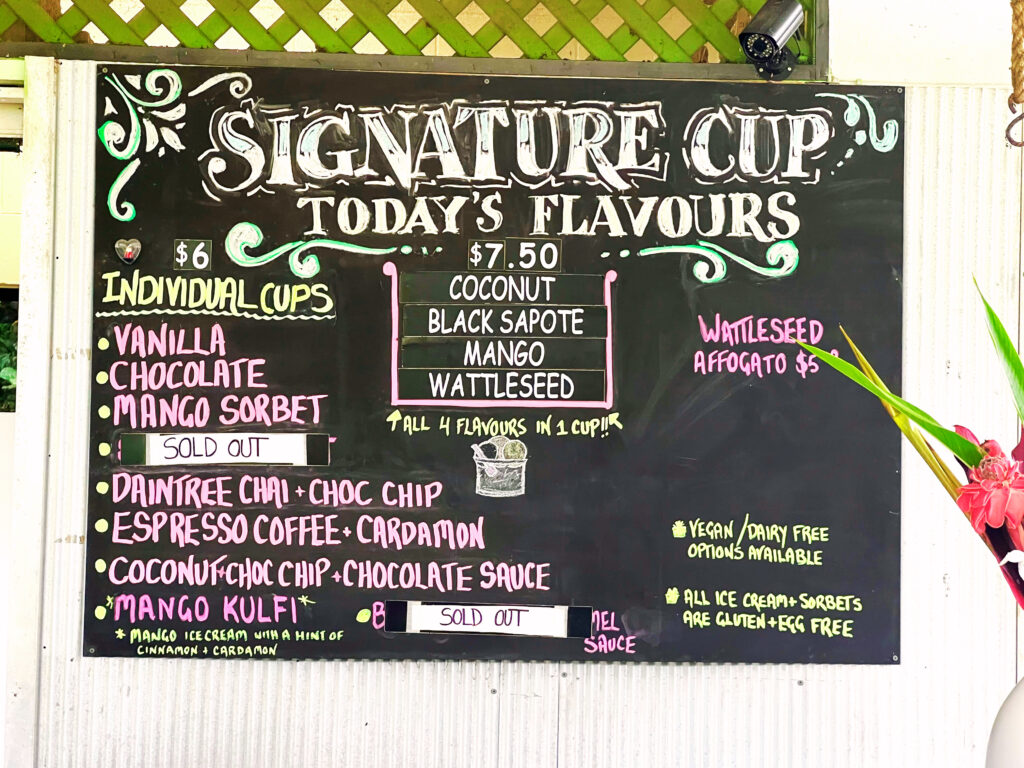 SIGNATURE CUP
TODAY'S FLAVOURS
$6
INDIVIDUAL CUPS
VANILLA
CHOCOLATE
MANGO SORBET
SOLD OUT
DAINTREE CHAI + CHOC CHIP
ESPRESSO COFFEE + CARDAMON
COCONUT + CHOC CHIP + CHOCOLATE SAUCE
*MANGO KULFI*
* MANGO ICECREAM WITH A HINT OF
CINNAMON + CARDAMON
SOLD OUT
SAUCE
$7.50
COCONUT
BLACK SAPOTE
MANGO
WATTLESEED
ALL 4 FLAVOURS IN 1 CUP!!
WATTLESEED
AFFOGATO $5
VEGAN / DAIRY FREE
OPTIONS AVAILABLE
ALL ICE CREAM + SORBETS
ARE GLUTEN + EGG FREE